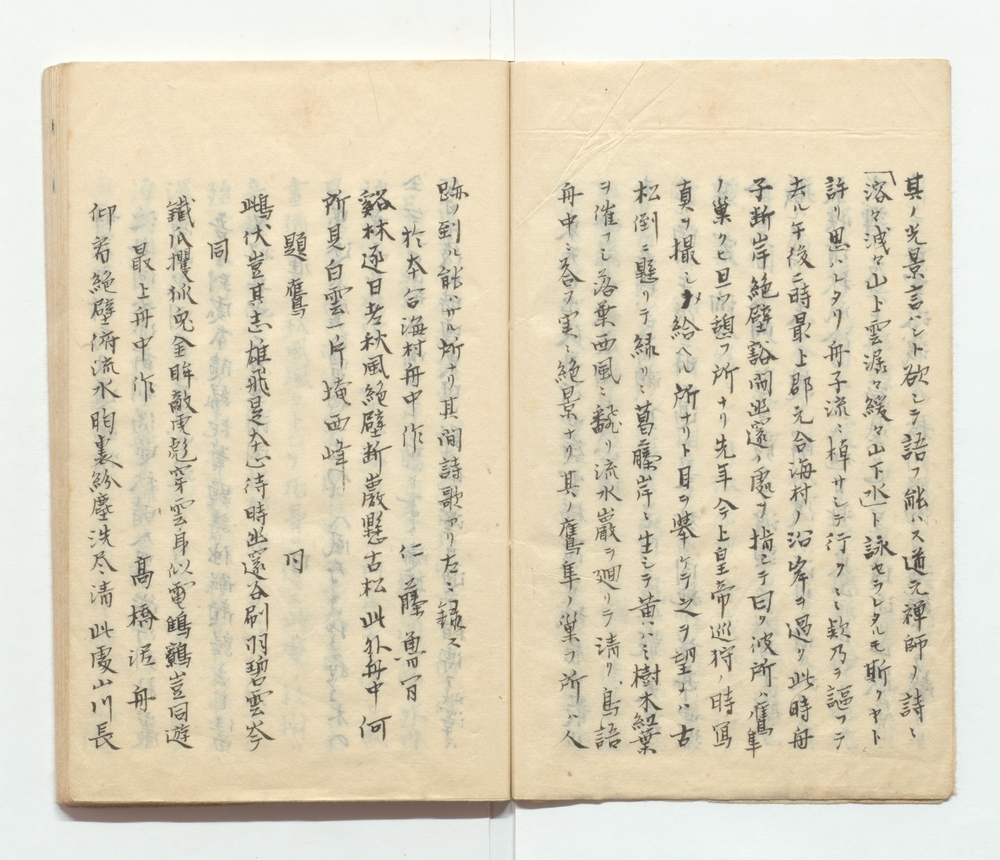 其ノ光景言ハント欲シテ語フ能ハス道元禅師ノ詩ニ
「溶々淺々山上雲潺々緩々山下水」ト詠セラレタルモ斯クヤト
許リ思ハレタリ舟子流ニ棹サシテ行クヽ欵乃ヲ謳フテ
去ル午後二時最上郡元合海村ノ沿岸ヲ過ク此時舟
子断岸絶壁谿間幽邃ノ處ヲ指シテ曰ク彼所ハ鷹隼
ノ巣クヒ且ツ憩フ所ナリ先年今上皇帝巡狩ノ時寫
真ヲ撮シメ給ヘル所ナリト目ヲ挙ケテ之ヲ望メハ古
松倒ニ懸リテ緑リニ葛藤岸ニ生シテ黄ハミ樹木紅葉
ヲ催フシ落葉西風ニ飜リ流水巌ヲ廻リテ清リ鳥語
舟中ニ答フ実ニ絶景ナリ其ノ鷹隼ノ巣フ所ハ人
跡ノ到ル能ハサル所ナリ其ノ間詩歌アリ左ニ録ス
於本合海村舟中作 仁藤
谿林逐日老秋風絶壁断巌懸古松此外舟中何
所見白雲一片埯西峰
題鷹 同
鴟伏豈其志雄飛是本心待時幽邃谷刷羽碧雲岑
同
鐵爪攫狐兎金眸敵虎彪穿雲身似電鶴豈同遊
最上舟中作 高橋泥舟
仰看絶壁俯流水胸裏紛塵洗尽清此處山川長